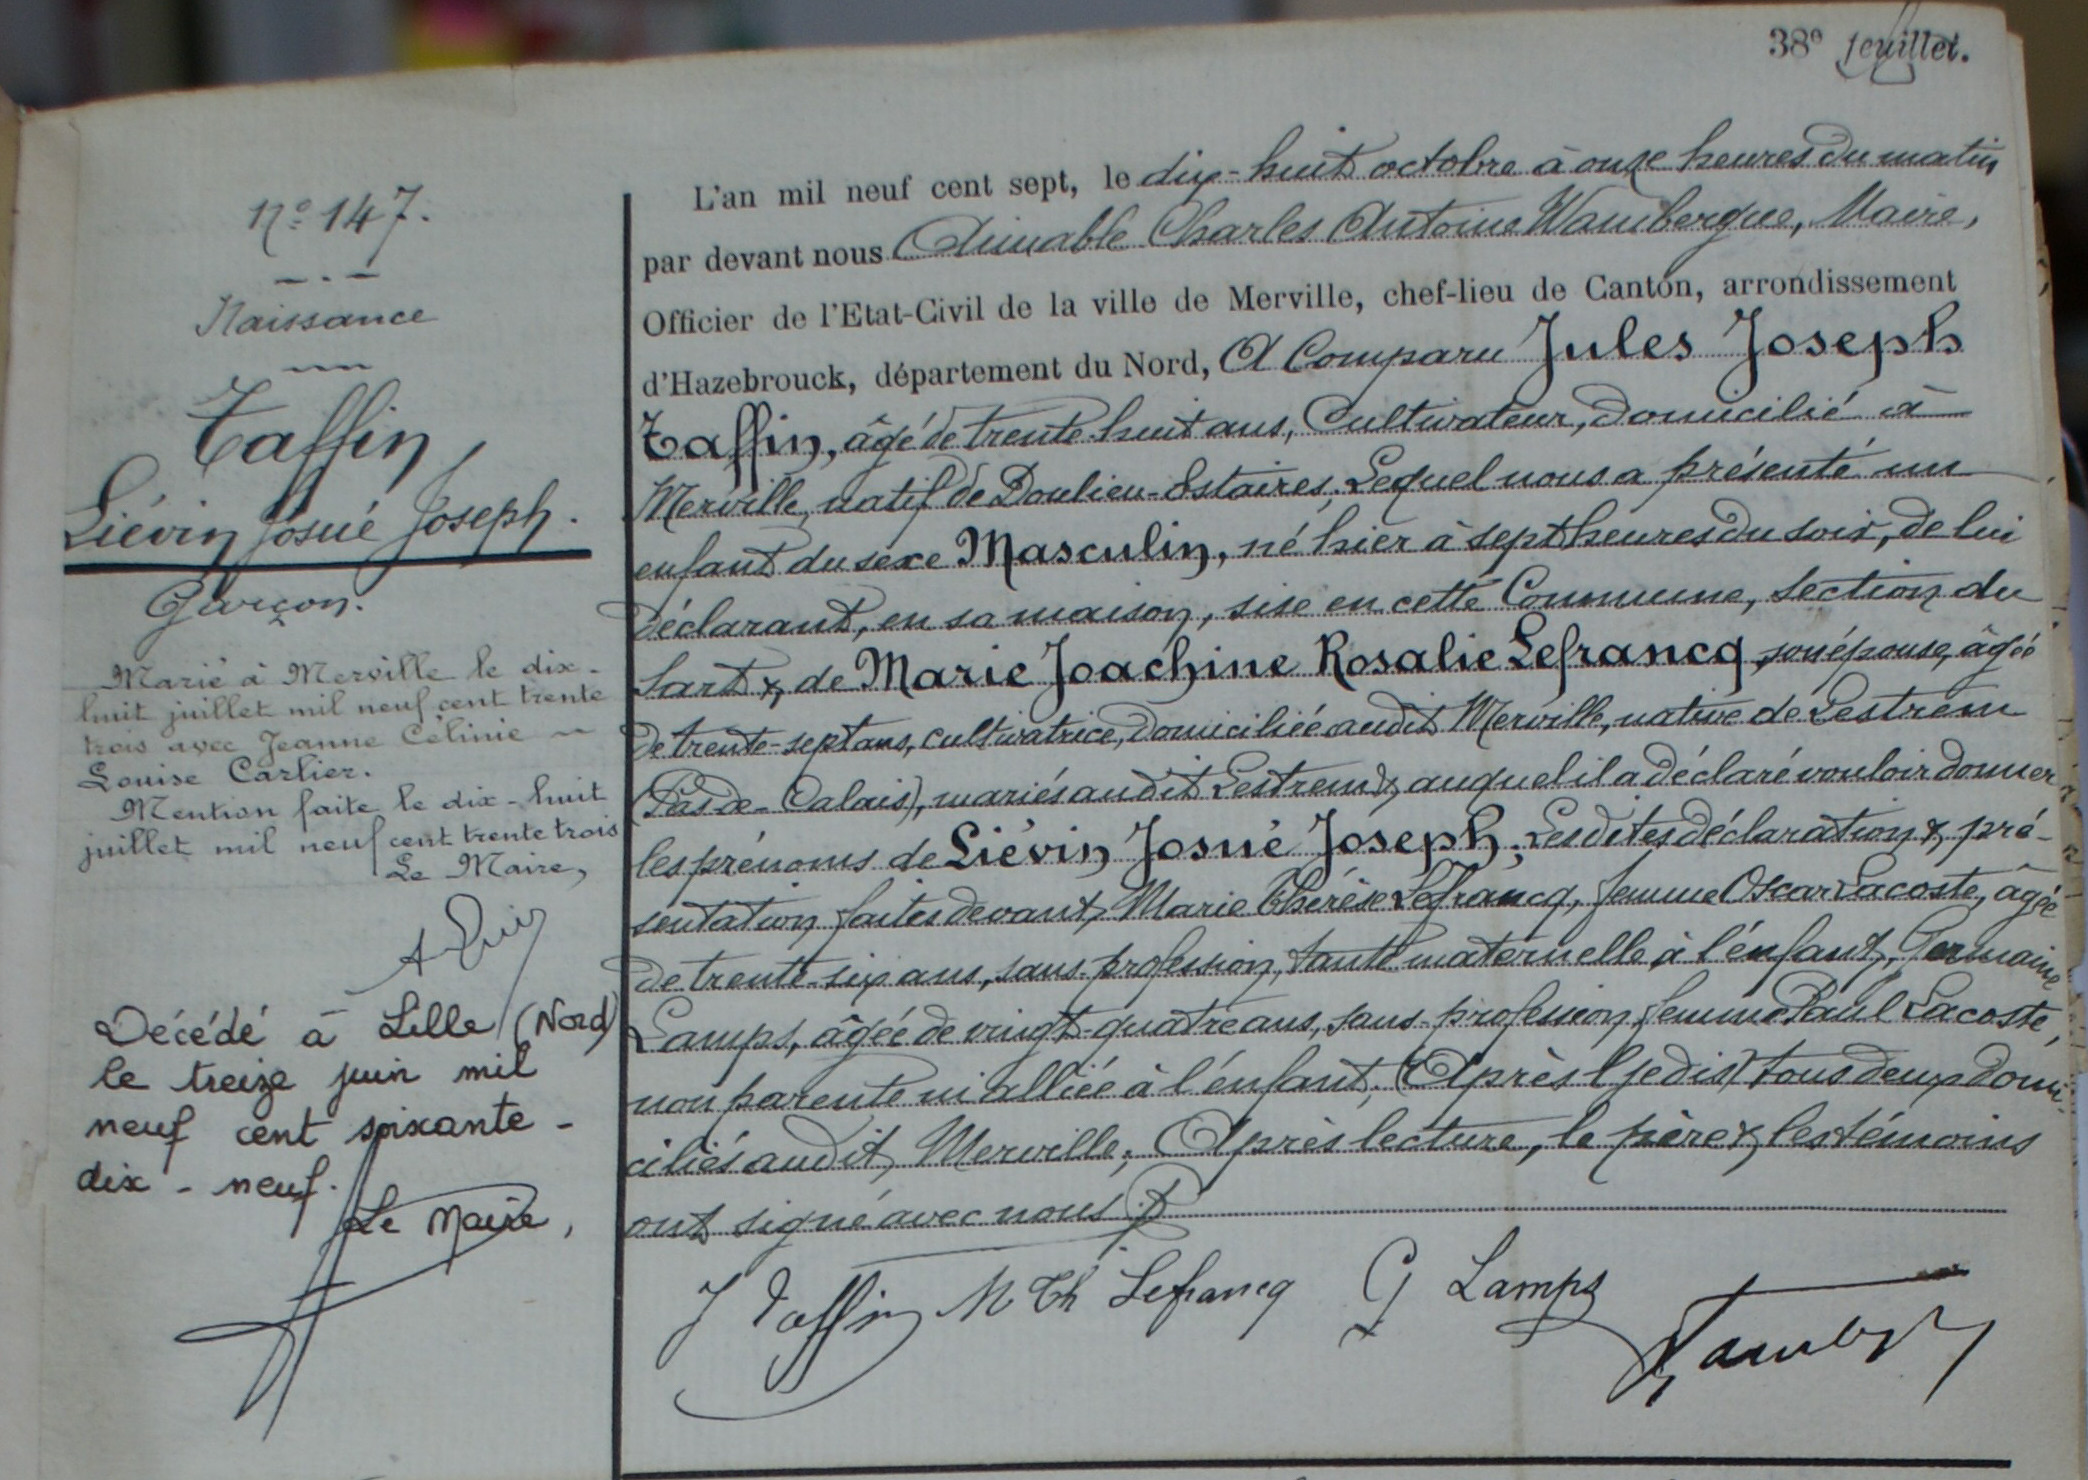 38e feuillet.
No 147.
Naissance
Taffin,
Liévin Josué Joseph.
Garçon.
Marié à Merville le dix-
huit juillet mil neuf cent trente
trois avec Jeanne Célinie
Louise Carlier.
Mention faite le dix-huit
juillet mil neuf cent trente trois
Le Maire,
Décédé à Lille (Nord)
le treize juin mil
neuf cent soixante-
dix-neuf.
Le Maire,
L'an mil neuf cent sept, le dix-huit octobre à onze heures du matin
par devant nous Aimable Charles Antoine Wambergue, Maire,
Officier de l'Etat-Civil de la ville de Merville, chef-lieu de Canton, arrondissement
d'Hazebrouck, département du Nord, A Comparu Jules Joseph
Taffin, âgé de trente-huit ans, Cultivateur, domicilié à
Merville, natif de Doulieu-Estaires; Lequel nous a présenté un
enfant du sexe Masculin, né hier à sept heures du soir, de lui
déclarant, en sa maison, sise en cette Commune, section du
Sart & de Marie Joachine Rosalie Lefrancq, son épouse, âgée
de trente-sept ans, cultivatrice, domiciliée audit Merville, native de Lestrem
(Pas-de-Calais), mariés audit Lestrem & auquel il a déclaré vouloir donner
les prénoms de Liévin Josué Joseph; Lesdites déclaration & pré-
sentation faites devant Marie Thérèse Lefrancq, femme Oscar Lacoste, âgée
de trente-six ans, sans profession, tante maternelle à l'enfant, Germaine
Lamps, âgée de vingt-quatre ans, sans profession, femme Paul Lacoste,
non parente ni alliée à l'enfant, (Après l je dis) tous deux domi-
ciliés audit Merville; Après lecture, le père & les témoins
ont signé avec nous
J Taffin M Th Lefrancq G Lamps